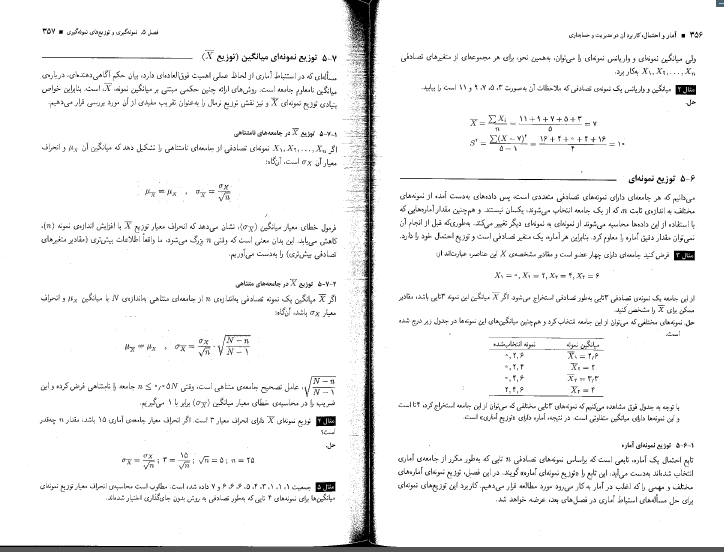 ۳۵۶ ■ آمار و احتمال، کاربرد آن در مدیریت و حسابداری
ولی میانگین نمونه‌ای و واریانس نمونه‌ای را می‌توان، به‌همین نحو، برای هر مجموعه‌ای از متغیرهای تصادفی
X₁, X₂, ..., Xₙ به‌کار برد.
مثال ۲ میانگین و واریانس یک نمونه‌ی تصادفی که ملاحظات آن به‌صورت ۳، ۵، ۷، ۹ و ۱۱ است را بیابید.
حل.
X̄ = ∑Xᵢ / n = (۱۱ + ۹ + ۷ + ۵ + ۳) / ۵ = ۷
S² = ∑(X − ۷)² / (۵ − ۱) = (۱۶ + ۴ + ۰ + ۴ + ۱۶) / ۴ = ۱۰
۵-۶ توزیع نمونه‌ای
می‌دانیم که هر جامعه‌ای دارای نمونه‌های تصادفی متعددی است، پس داده‌های به‌دست آمده از نمونه‌های
مختلف به اندازه‌ی ثابت n، که از یک جامعه انتخاب می‌شوند، یکسان نیستند. و هم‌چنین مقدار آماره‌هایی که
با استفاده از این داده‌ها محاسبه می‌شوند از نمونه‌ای به نمونه‌ای دیگر تغییر می‌کند. به‌طوری‌که قبل از انجام آن
نمی‌توان مقدار دقیق آماره را معلوم کرد. بنابراین هر آماره، یک متغیر تصادفی است و توزیع احتمال خود را دارد.
مثال ۳ فرض کنید جامعه‌ای دارای چهار عضو است و مقادیر مشخصه‌ی X این عناصر عبارت‌اند از:
X₁ = ۰, X₂ = ۲, X₃ = ۴, X₄ = ۶
از این جامعه یک نمونه‌ی تصادفی ۳تایی به‌طور تصادفی استخراج می‌شود. اگر X̄ میانگین این نمونه ۳تایی باشد، مقادیر
ممکن برای X̄ را مشخص کنید.
حل. نمونه‌های مختلفی که می‌توان از این جامعه انتخاب کرد و هم‌چنین میانگین‌های این نمونه‌ها در جدول زیر درج شده
است.
نمونه انتخاب‌شده میانگین نمونه
۰, ۲, ۶ X̄₁ = ۲٫۶
۰, ۲, ۴ X̄₂ = ۲
۰, ۴, ۶ X̄₃ = ۳٫۳
۲, ۴, ۶ X̄₄ = ۴
با توجه به جدول فوق مشاهده می‌کنیم که نمونه‌های ۳تایی مختلفی که می‌توان از این جامعه استخراج کرد، ۴تا است
و این نمونه‌ها دارای میانگین متفاوتی است. در نتیجه، آماره دارای «توزیع آماری» است.
۵-۶-۱ توزیع نمونه‌ای آماره
تابع احتمال یک آماره، تابعی است که براساس نمونه‌های تصادفی n تایی که به‌طور مکرر از جامعه‌ی آماری
انتخاب شده‌اند به‌دست می‌آید. این تابع را «توزیع نمونه‌ای آماره» گویند. در این فصل، توزیع نمونه‌ای آماره‌های
مختلف و مهمی را که اغلب در آمار به کار می‌رود مورد مطالعه قرار می‌دهیم. کاربرد این توزیع‌های نمونه‌ای
برای حل مسأله‌های استنباط آماری در فصل‌های بعد، عرضه خواهد شد.
فصل ۵. نمونه‌گیری و توزیع‌های نمونه‌گیری ■ ۳۵۷
۵-۷ توزیع نمونه‌ای میانگین (توزیع X̄)
مسأله‌ای که در استنباط آماری از لحاظ عملی اهمیت فوق‌العاده‌ای دارد، بیان حکم آگاهی‌دهنده‌ای، درباره‌ی
میانگین نامعلوم جامعه است. روش‌های ارائه چنین حکمی مبتنی بر میانگین نمونه، X̄، است. بنابراین خواص
بنیادی توزیع نمونه‌ای X̄ و نیز نقش توزیع نرمال را به‌عنوان تقریب مفیدی از آن مورد بررسی قرار می‌دهیم.
۵-۷-۱ توزیع X̄ در جامعه‌های نامتناهی
اگر X₁, X₂, ..., Xₙ نمونه‌ای تصادفی از جامعه‌ای نامتناهی را تشکیل دهد که میانگین آن μₓ و انحراف
معیار آن σₓ است، آن‌گاه:
μ_X̄ = μ_X , σ_X̄ = σ_X / √n
فرمول خطای معیار میانگین (σ_X̄)، نشان می‌دهد که انحراف معیار توزیع X̄ با افزایش اندازه‌ی نمونه (n)،
کاهش می‌یابد. این بدان معنی است که وقتی n بزرگ می‌شود، ما واقعاً اطلاعات بیش‌تری (مقادیر متغیرهای
تصادفی بیش‌تری) را به‌دست می‌آوریم.
۵-۷-۲ توزیع X̄ در جامعه‌های متناهی
اگر X̄ میانگین یک نمونه تصادفی به‌اندازه‌ی n از جامعه‌ای متناهی به‌اندازه‌ی N با میانگین μₓ و انحراف
معیار σₓ باشد، آن‌گاه:
μ_X̄ = μ_X , σ_X̄ = σ_X / √n · √((N − n) / (N − ۱))
√((N − n) / (N − ۱))، عامل تصحیح جامعه‌ی متناهی است، وقتی n ≤ ۰٫۰۵N جامعه را نامتناهی فرض کرده و این
ضریب را در محاسبه‌ی خطای معیار میانگین (σ_X̄) برابر با ۱ می‌گیریم.
مثال ۴ توزیع نمونه‌ای X̄ دارای انحراف معیار ۳ است. اگر انحراف معیار جامعه‌ی آماری ۱۵ باشد، مقدار n چه‌قدر
است؟
حل.
σ_X̄ = σ_X / √n ; ۳ = ۱۵ / √n ; √n = ۵ ; n = ۲۵
مثال ۵ جمعیت ۱، ۱، ۱، ۳، ۴، ۵، ۶، ۶، ۶ و ۷ داده شده است. مطلوب است محاسبه‌ی انحراف معیار توزیع نمونه‌ای
میانگین‌ها برای نمونه‌های ۴ تایی که به‌طور تصادفی به روش بدون جای‌گذاری اختیار شده‌اند.